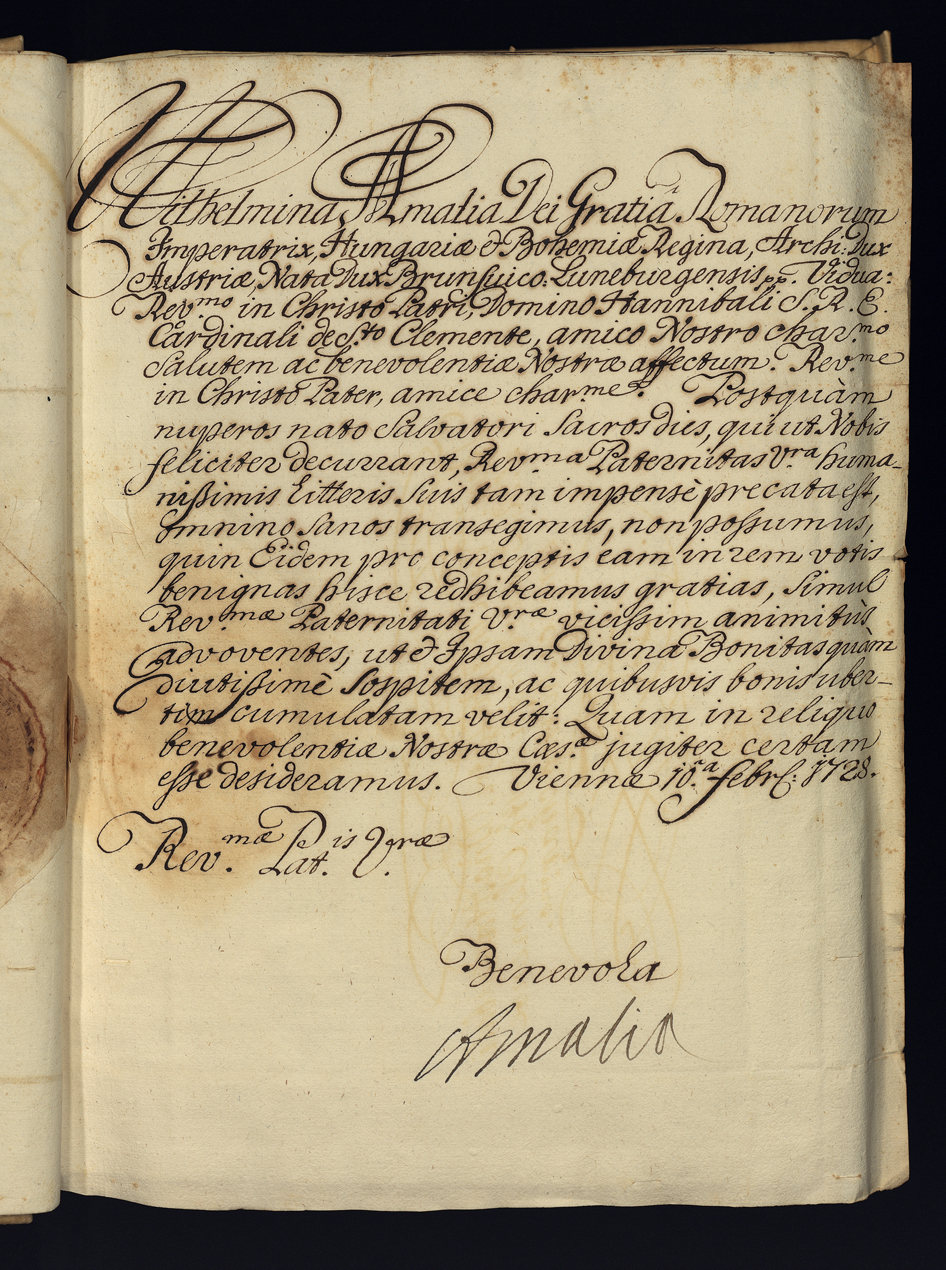 Wilhelmina Amalia Dei Gratiâ Romanorum
Imperatrix, Hungariæ & Bohemiæ Regina, Archi: Dux
Austriæ, Nata Dux Brunsuico: Luneburgensis pp. Vidua:
Rev.mo in Christo Patri, Domino Hannibali S. R. E.
Cardinali de S.to Clemente, amico Nostro char.mo
Salutem ac benevolentiæ Nostræ affectum. Rev.me
in Christo Pater, amice char.me. Postquàm
nuperos nato Salvatori Sacros dies, qui ut Nobis
feliciter decurrant, Rev.ma Paternitas V.ra huma-
nißimis Litteris Suis tam impensè precata est,
omnino Sanos transegimus, non possumus,
quin Eidem pro conceptis eam in rem votis
benignas hisce redhibeamus gratias, Simul
Rev.mæ Paternitati V.ræ vicissim animitùs
advoventes, ut & Ipsam Divina Bonitas quàm
diutißimè Sospitem, ac quibusvis bonis uber-
tim cumulatam velit: Quam in reliquo
benevolentiæ Nostræ Cæs.æ jugiter certam
esse desideramus. Viennæ 10.a febr: 1728.
Rev.mæ Pat.is V.ræ
Benevola
Amalia